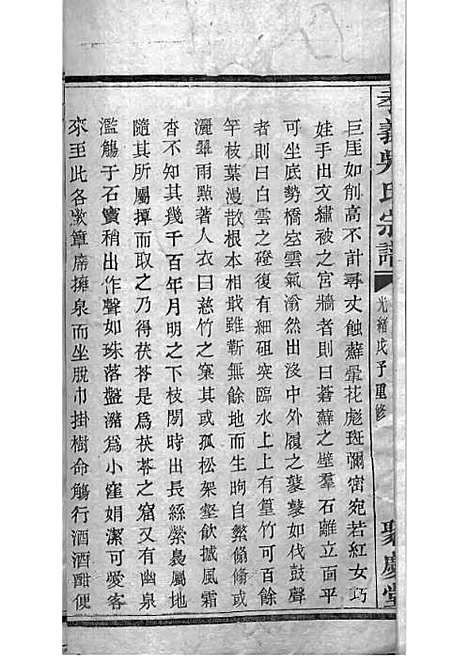 孝義吳氏宗譜
光緒戊子重修
聚慶堂
巨厓如削高不計尋丈蝕蘚暈花彪斑彌密宛若紅女巧
娃手出文繡被之宮牆者則曰蒼蘚之壁羣石離立面平
可坐底勢橋空雲氣滃然出沒中外履之鼕鼕如伐鼓聲
者則曰白雲之磴復有細砠突臨水上上有篁竹可百餘
竿枝葉漫散根本相敢雖斬無餘地而生昫自縈翛翛或
灑翠雨㸃著人衣曰慈竹之窠其或孤松架壑飲撼風霜
杳不知其幾千百年月明之下枝閒時出長絲縈裊屬地
隨其所屬撣而取之乃得茯苓是爲茯苓之窟又有幽泉
濫觴于石竇稍出作聲如珠落盤潴爲小窪娟潔可愛客
來至此各歛簟席擁泉而坐脫巾掛樹命觴行酒酒酣便